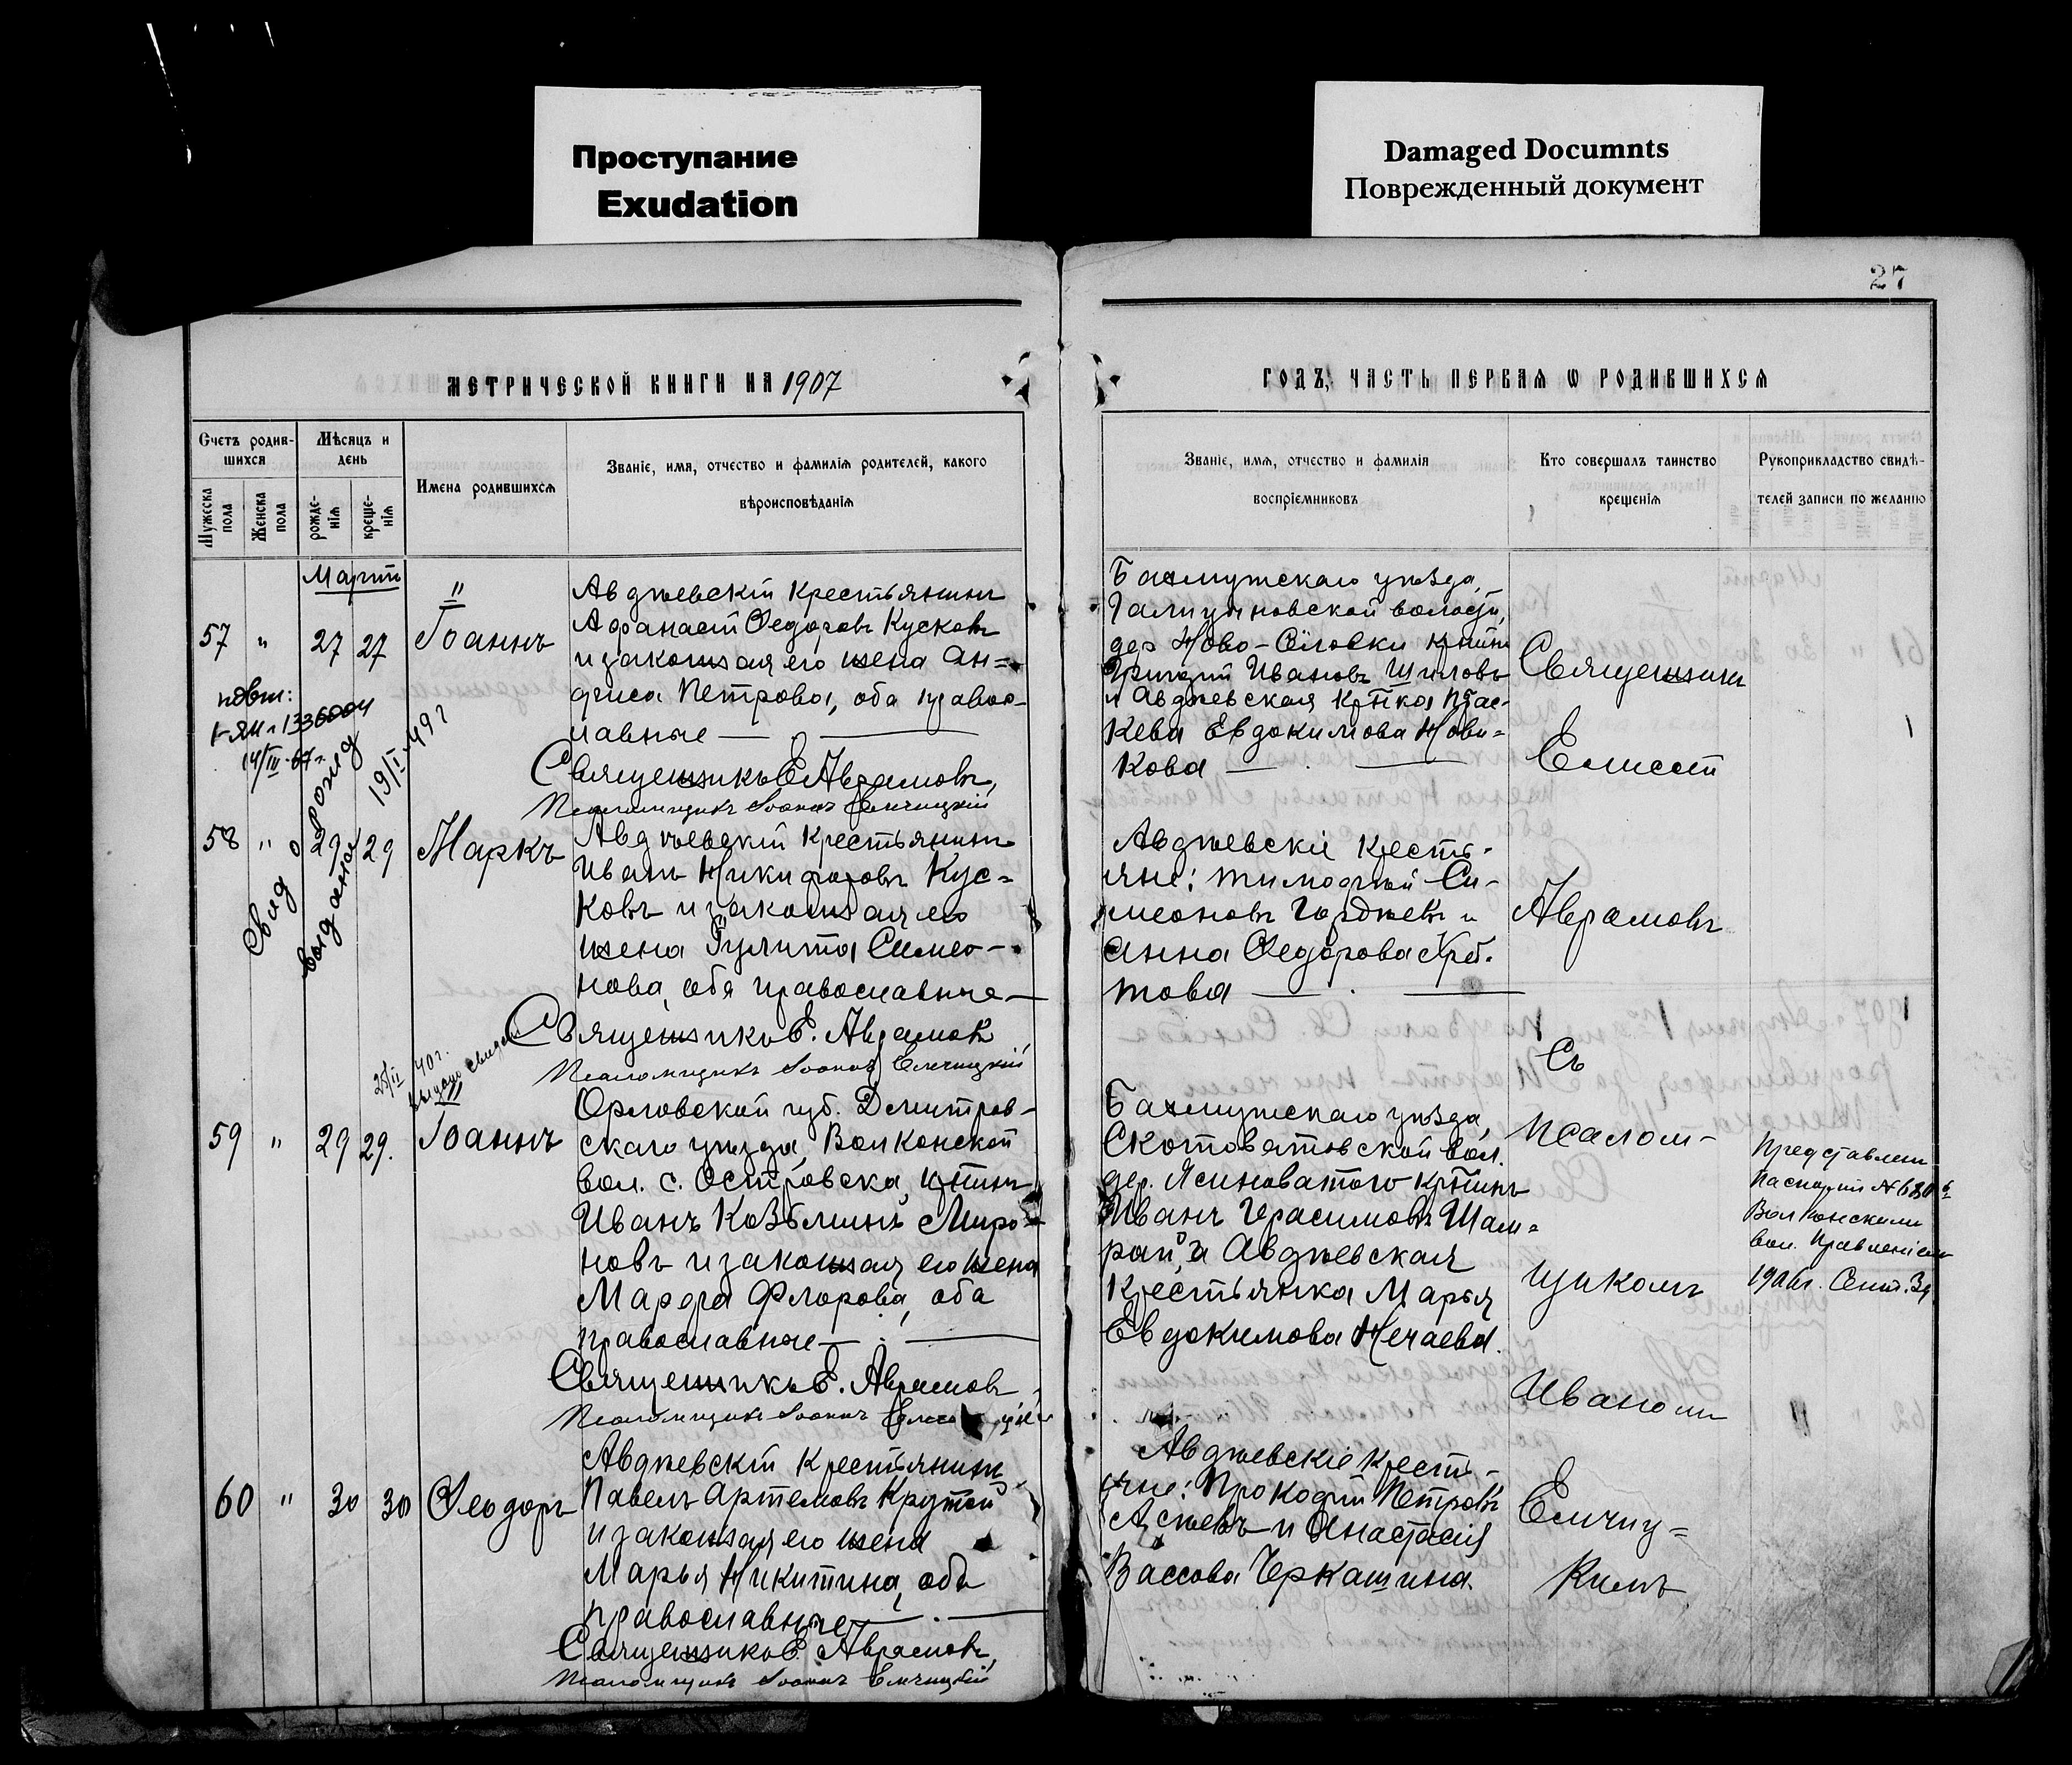 Проступание
Exudation
Damaged Documnts
Поврежденный документ
27
МЕТРИЧЕСКОЙ КНИГИ НА 1907
ГОДЪ, ЧАСТЬ ПЕРВАЯ Ѡ РОДИВШИХСЯ
Счетъ родив-
шихся
Мужеска
пола
Женска
пола
Мѣсяцъ и
день
рожде-
нія
креще-
нія
Имена родившихся
Званіе, имя, отчество и фамилія родителей, какого
вѣроисповѣданія
Званіе, имя, отчество и фамилія
воспріемниковъ
Кто совершалъ таинство
крещенія
Рукоприкладство свидѣ-
телей записи по желанію
Мартъ
57 " 27 27 Іоаннъ
Авдѣевскій крестьянинъ
Афанасій Ѳедоровъ Кусковъ
и законная его жена Ан-
фиса Петрова, оба правос-
лавные
Священникъ Е. Аврамовъ,
Псаломщикъ Іоаннъ Ельчицкій
Бахмутскаго уѣзда,
Галицыновской волости,
дер. Ново- крестин
Григорій Ивановъ Шиловъ
и Авдѣевская кр-тка Парас-
кева Евдокимова Нови-
кова
повт:
14/III-67г.
Свид о рожд
выдано 19/I-49 г
58 " 29 29 Маркъ
Авдѣевскій крестьянинъ
Иванъ Никифоровъ Кус-
ковъ и законная его
жена Іулита Симео-
нова, оба православные
Священникъ Е. Аврамовъ
Псаломщикъ Іоаннъ Ельчицкій
Авдѣевскіе кресть-
яне: Тимофей Си-
меоновъ Гордѣевъ и
Анна Ѳедорова
това
25/II 40 г.
выдано свидет
59 " 29 29. Іоаннъ
Орловской губ. Дмитров-
скаго уѣзда, Волконской
вол. с. Островска, кр-тинъ
Иванъ Козьминъ Миро-
новъ и законная его жена
Марфа Флорова, оба
православные
Священникъ Е. Аврамовъ
Псаломщикъ Іоаннъ
Бахмутскаго уѣзда,
Скотоватовской вол.
дер. Ясиноватого кр-тинъ
Иванъ Герасимовъ Шам-
рай, и Авдѣевская
крестьянка Марья
Евдокимова Нечаева.
60 " 30 30 Ѳеодоръ
Авдѣевскій крестьянинъ
Павелъ Артемовъ Крутой
и законная его жена
Марья Никитина, оба
православные
Священникъ Е. Аврамовъ,
Псаломщикъ Іоаннъ Ельчицкій
Авдѣевскіе кресть-
яне: Прокофій Петровъ
Асѣевъ и Анастасія
Вассова Черкашина.
Священникъ
Елисей
Аврамовъ
Съ
псалом-
щикомъ
Иваномъ
Ельчиц-
кимъ
Представленъ
паспортъ №
Волконскимъ
вол. Правленіемъ
1906 г. Сент.